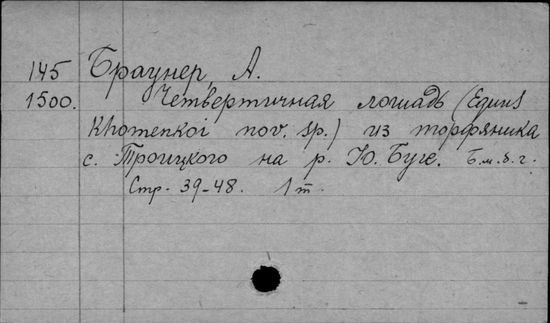 145 Браунер, А.
1500. Четвертичная лошадь (Equus
Khomenkoi nov. sp.) из торфяника
с. Троицкого на р. Ю. Буге. Б.м.б.г.
Стр. 39-48. 1т.